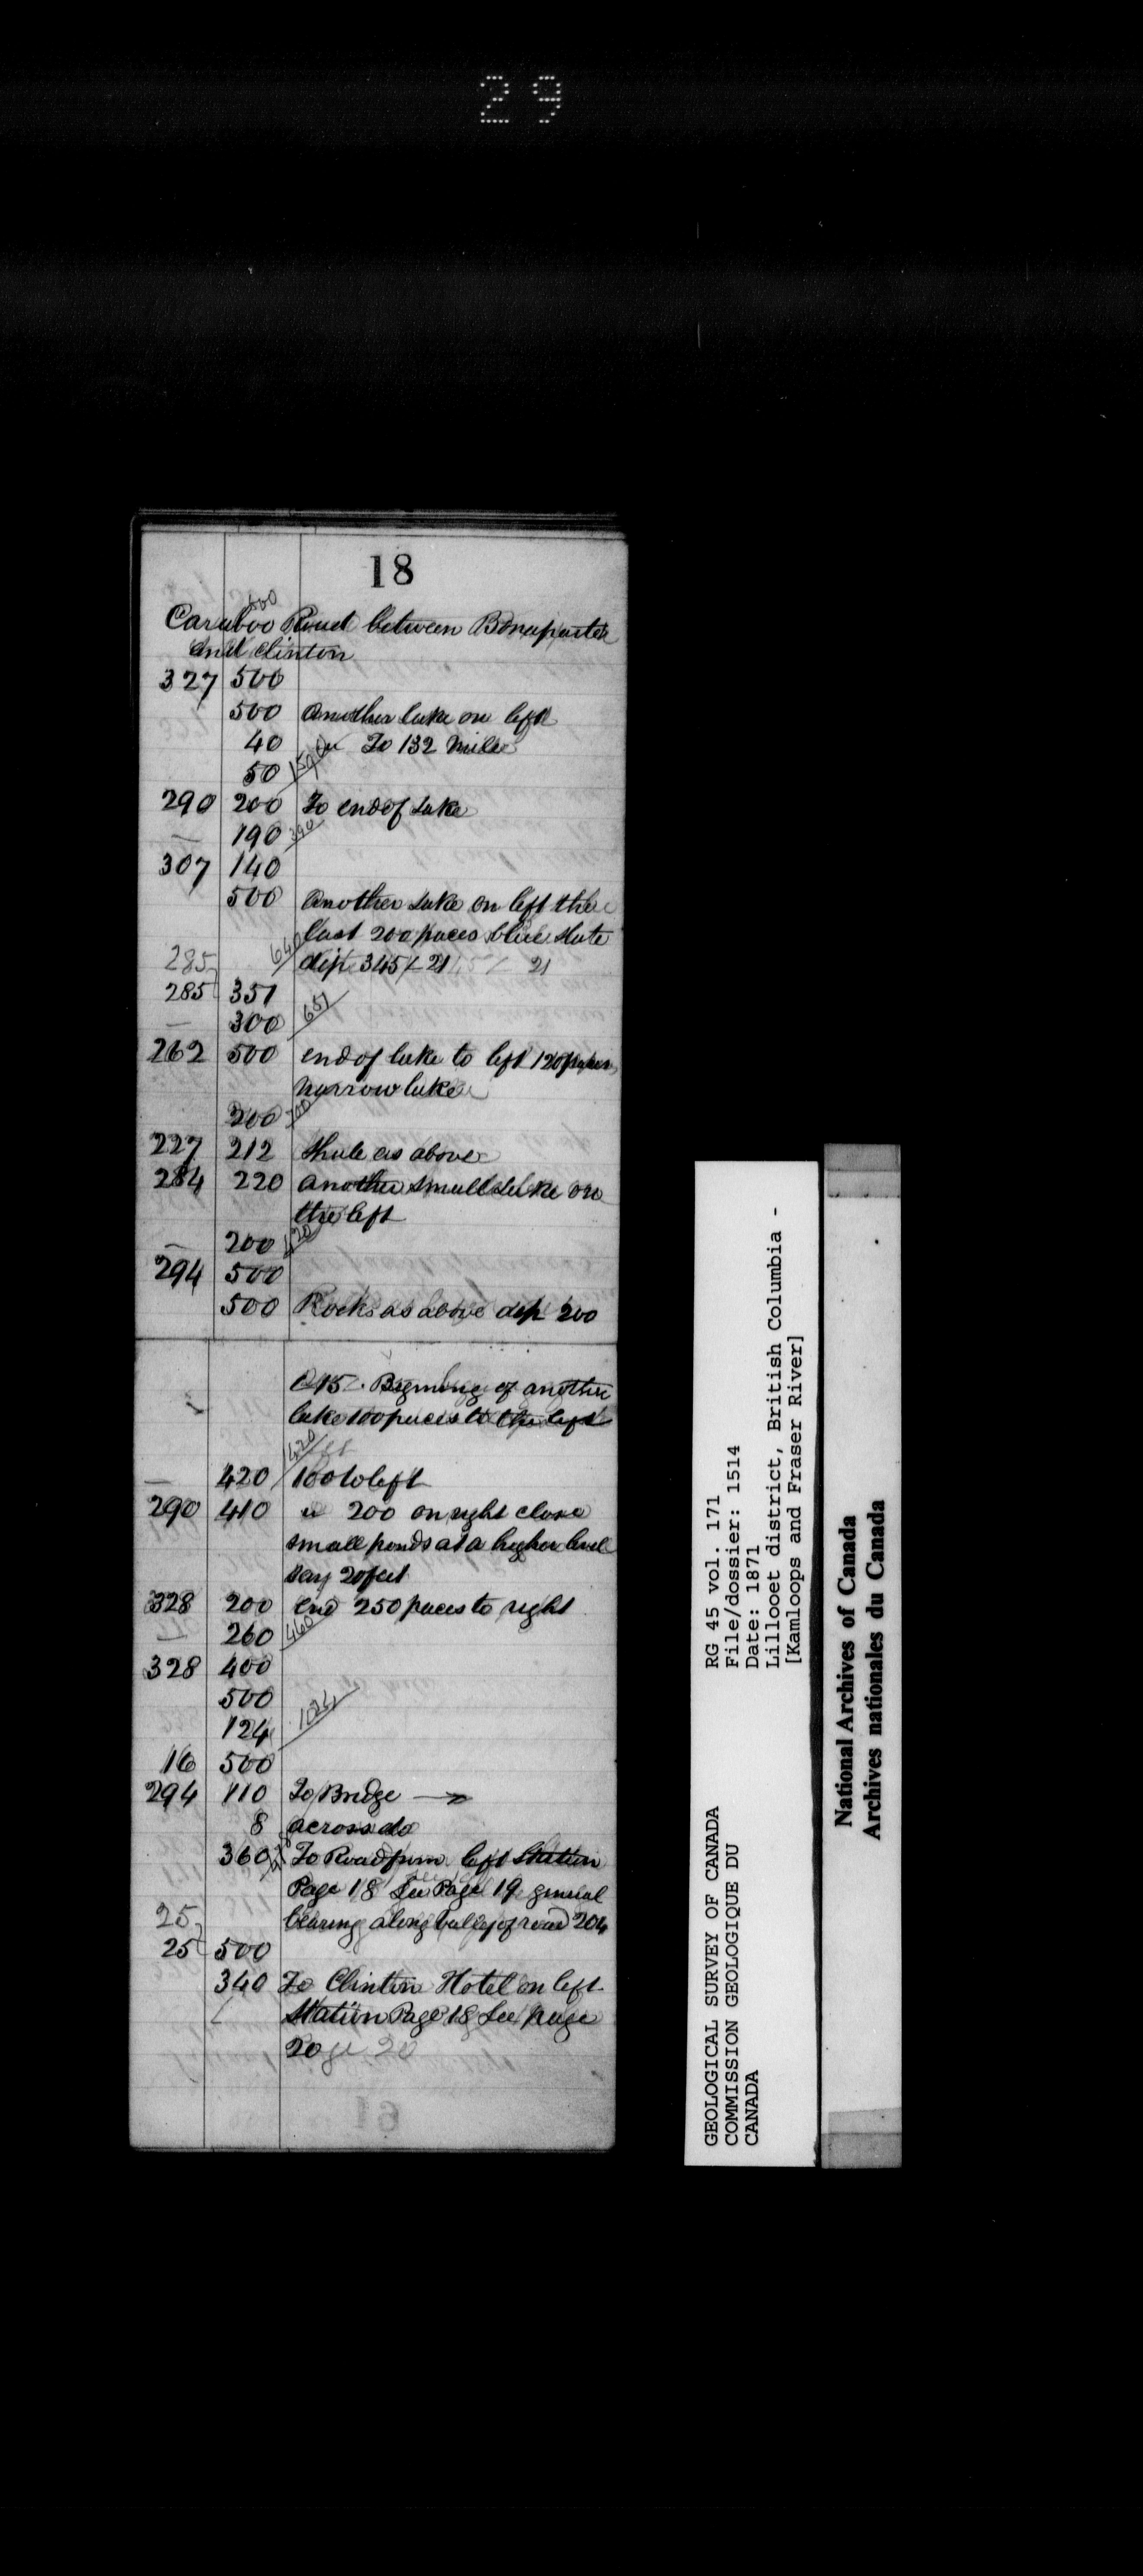 29
18
500
Cariboo Road between Bonaparte
and Clinton
327 500
500 Another lake on left
40 To 132 mile
50
290 200 To end of Lake
— 190 390
307 140
500 Another Lake on left the
last 200 paces blue slate
640
285 dip 345 ∠ 21 21
285 351
— 300 651
262 500 end of lake to left 120 paces
narrow lake
200 700
227 212 Shale as above
284 220 another small Lake on
the left
— 200 420
294 500
500 Rocks as above dip 200
∠ 15. Begining of another
lake 100 paces to the left
1420
— 420 100 to left
290 410 200 on right close
small ponds at a higher level
say 20 feet
328 200 end 250 paces to right
— 260 460
328 400
500
124 1024
16 500
294 110 To Bridge →
8 across do
360 To Road from left Station
Page 18 See Page 19 general
25 bearing along valley of road 204
25 500
340 To Clinton Hotel on left
Station Page 18 See page
20 20
RG 45 vol. 171
File/dossier: 1514
Date: 1871
Lillooet district, British Columbia -
[Kamloops and Fraser River]
GEOLOGICAL SURVEY OF CANADA
COMMISSION GEOLOGIQUE DU
CANADA
National Archives of Canada
Archives nationales du Canada